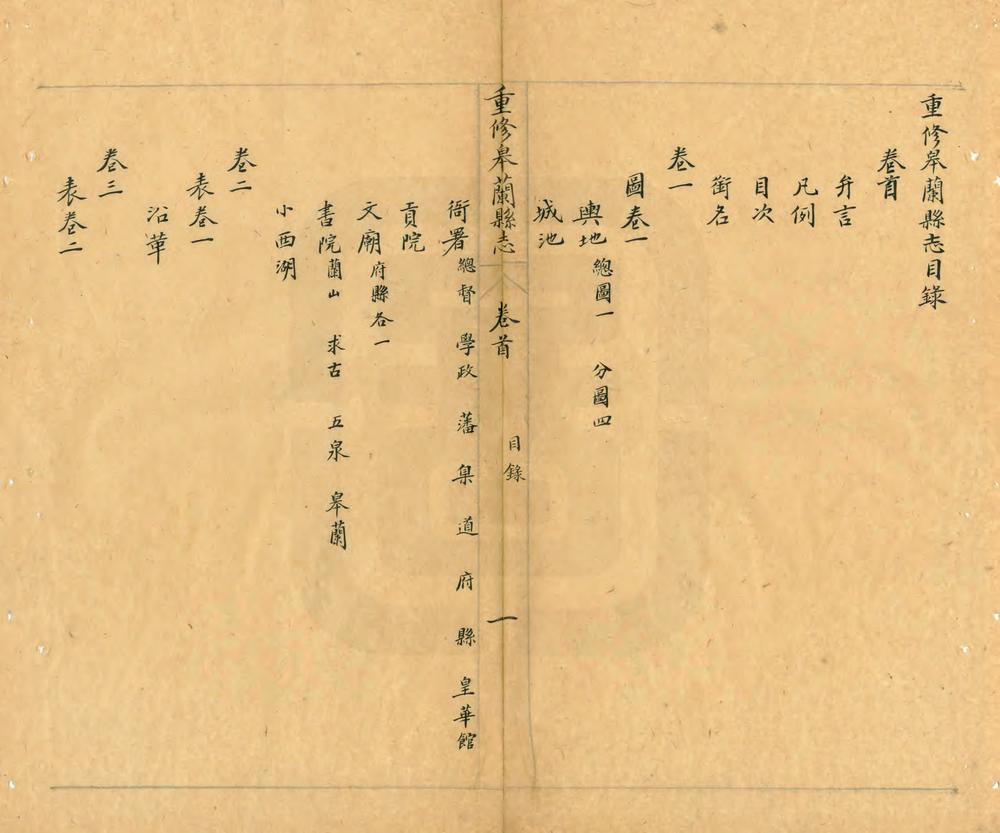 重修皋蘭縣志目錄
卷首
弁言
凡例
目次
銜名
卷一
圖卷一
輿地 總圖一 分圖四
城池
重修皋蘭縣志 卷首 目錄 一
衙署 總督 學政 藩 臬 道 府 縣 皇華館
貢院
文廟 府縣各一
書院 蘭山 求古 五泉 皋蘭
小西湖
卷二
表卷一
沿革
卷三
表卷二